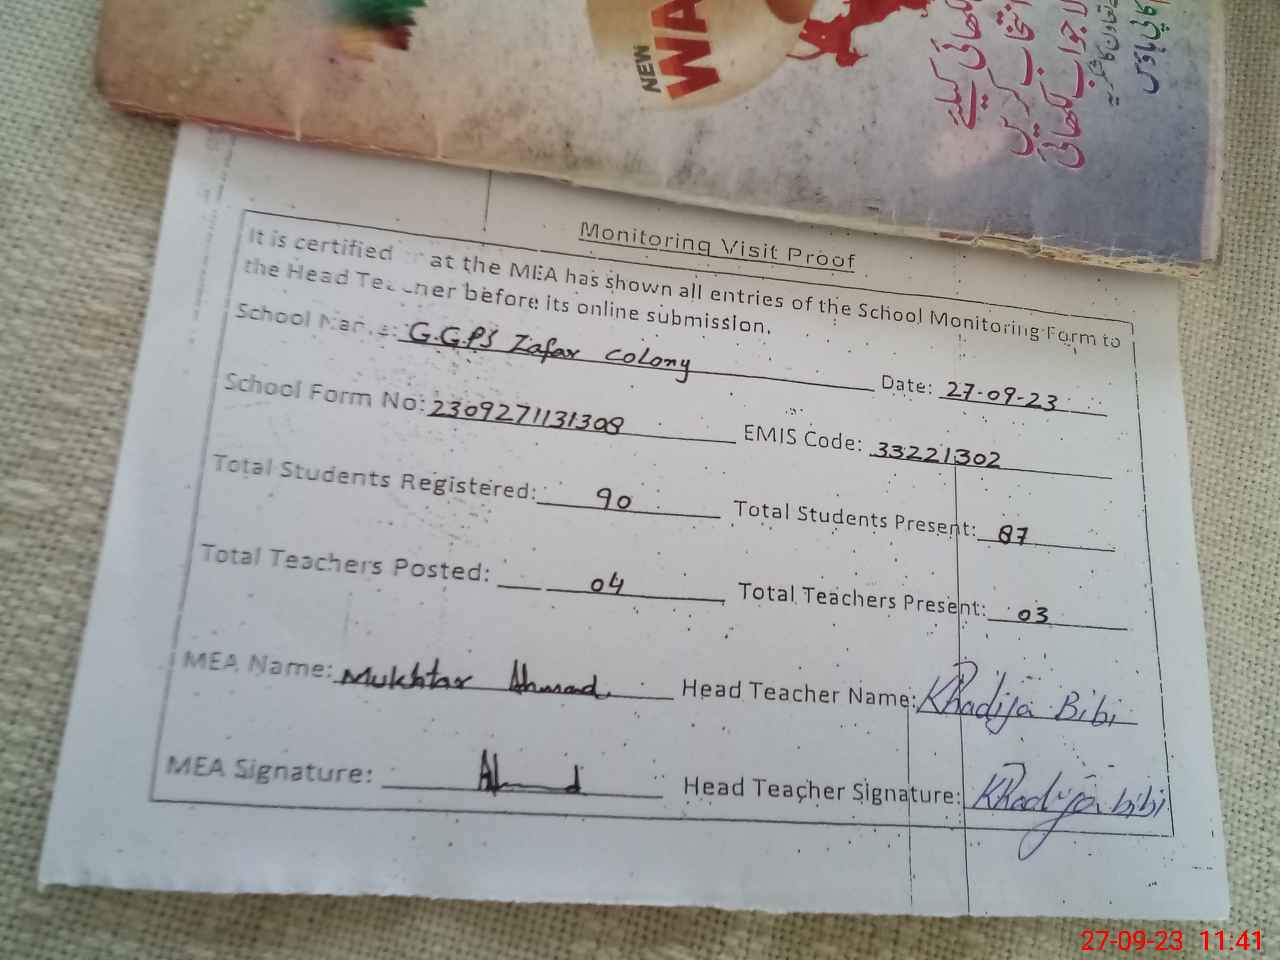 NEW
WA
لکھائی کیلئے
انتخاب کریں
لاجواب لکھائی
کاپی ہاؤس
Monitoring Visit Proof
It is certified at the MEA has shown all entries of the School Monitoring Form to
the Head Teacher before its online submission.
School Name: G.G.P.S Zafar Colony Date: 27-09-23
School Form No: 2309271131308 EMIS Code: 33221302
Total Students Registered: 90 Total Students Present: 87
Total Teachers Posted: 04 Total Teachers Present: 03
MEA Name: Mukhtar Ahmad Head Teacher Name: Khadija Bibi
MEA Signature: Ahmad Head Teacher Signature: Khadija bibi
27-09-23 11:41